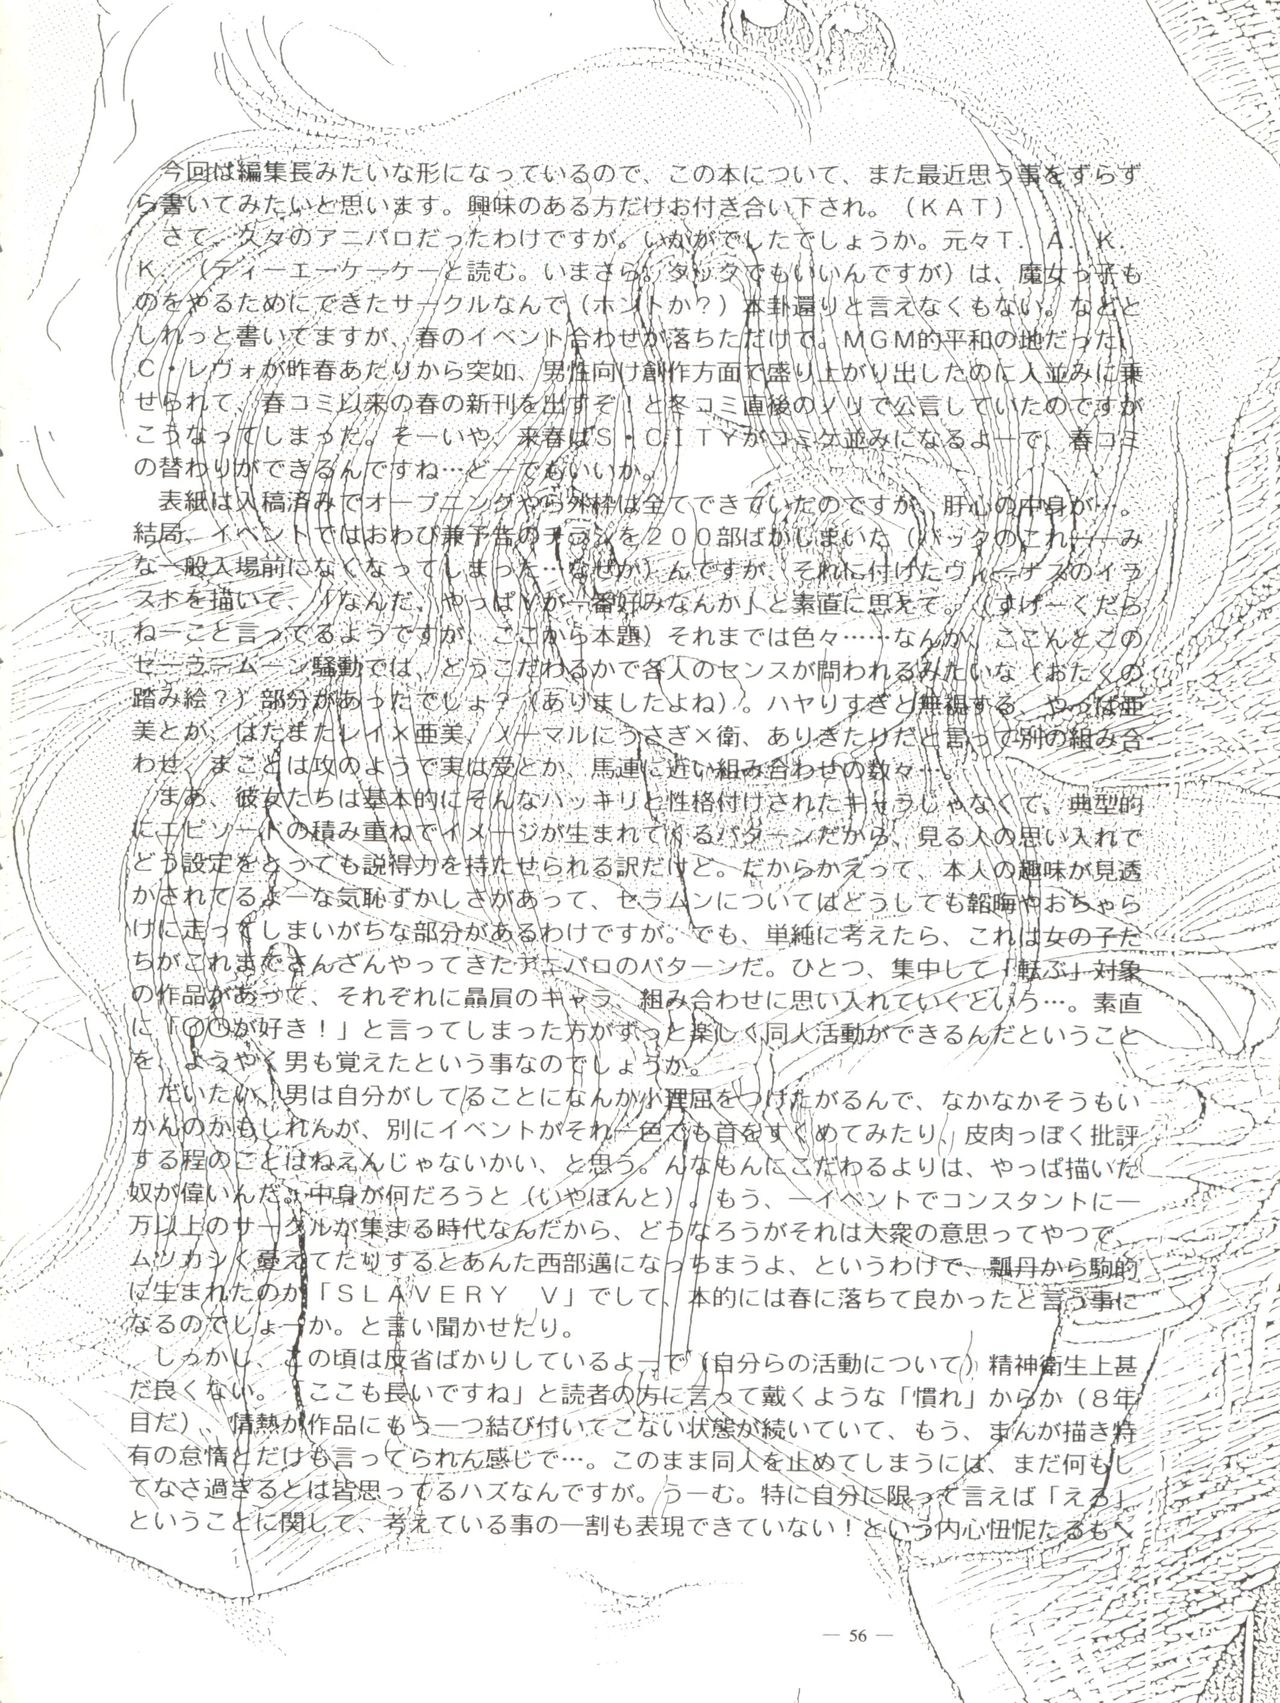 今回は編集長みたいな形になっているので、この本について、また最近思う事をずらず
ら書いてみたいと思います。興味のある方だけお付き合い下され。（ＫＡＴ）
さて、久々のアニパロだったわけですが。いかがでしたでしょうか。元々Ｔ．Ａ．Ｋ．
Ｋ．（ティーエーケーケーと読む。いまさら。タックでもいいんですが）は、魔女っ子も
のをやるためにできたサークルなんで（ホントか？）本卦還りと言えなくもない。などと
しれっと書いてますが、春のイベント合わせが落ちただけで。ＭＧＭ的平和の地だった、
Ｃ・レヴォが昨春あたりから突如、男性向け創作方面で盛り上がり出したのに人並みに乗
せられて、春コミ以来の春の新刊を出すぞ！と冬コミ直後のノリで公言していたのですが
こうなってしまった。そーいや、来春はＳ・ＣＩＴＹがコミケ並みになるよーで、春コミ
の替わりができるんですね…どーでもいいか。
表紙は入稿済みでオープニングやら外枠は全てできていたのですが、肝心の中身が…。
結局、イベントではおわび兼予告のチラシを２００部ばかしまいた（バッタのこれ――み
な一般入場前になくなってしまった…なぜか）んですが、それに付けたヴィーナスのイラ
ストを描いて、「なんだ、やっぱＶが一番好みなんか」と素直に思えて。（すげーくだら
ねーこと言ってるようですが、ここから本題）それまでは色々……なんか、ここんとこの
セーラームーン騒動では、どうこだわるかで各人のセンスが問われるみたいな（おたくの
踏み絵？）部分があったでしょ？（ありましたよね）。ハヤりすぎと無視する、やっぱ亜
美とか、はたまたレイ×亜美、ノーマルにうさぎ×衛、ありきたりだと言って別の組み合
わせ、まことは攻のようで実は受とか、馬連に近い組み合わせの数々…。
まあ、彼女たちは基本的にそんなハッキリと性格付けされたキャラじゃなくて、典型的
にエピソードの積み重ねでイメージが生まれてくるパターンだから、見る人の思い入れで
どう設定をとっても説得力を持たせられる訳だけど。だからかえって、本人の趣味が見透
かされてるよーな気恥ずかしさがあって、セラムンについてはどうしても韜晦やおちゃら
けに走ってしまいがちな部分があるわけですが。でも、単純に考えたら、これは女の子た
ちがこれまでさんざんやってきたアニパロのパターンだ。ひとつ、集中して「転ぶ」対象
の作品があって、それぞれに贔屓のキャラ、組み合わせに思い入れていくという…。素直
に「○○が好き！」と言ってしまった方がずっと楽しく同人活動ができるんだということ
を、ようやく男も覚えたという事なのでしょうか。
だいたい、男は自分がしてることになんか小理屈をつけたがるんで、なかなかそうもい
かんのかもしれんが、別にイベントがそれ一色でも首をすくめてみたり、皮肉っぽく批評
する程のことはねえんじゃないかい、と思う。んなもんにこだわるよりは、やっぱ描いた
奴が偉いんだ。中身が何だろうと（いやほんと）。もう、一イベントでコンスタントに一
万以上のサークルが集まる時代なんだから、どうなろうがそれは大衆の意思ってやつで、
ムツカシく憂えてたりするとあんた西部邁になっちまうよ、というわけで、瓢丹から駒的
に生まれたのが「ＳＬＡＶＥＲＹ　Ｖ」でして、本的には春に落ちて良かったと言う事に
なるのでしょーか。と言い聞かせたり。
しっかし、この頃は反省ばかりしているよーで（自分らの活動について）精神衛生上甚
だ良くない。「ここも長いですね」と読者の方に言って戴くような「慣れ」からか（８年
目だ）、情熱が作品にもう一つ結び付いてこない状態が続いていて、もう、まんが描き特
有の怠惰とだけも言ってられん感じで…。このまま同人を止めてしまうには、まだ何もし
てなさ過ぎるとは皆思ってるハズなんですが。うーむ。特に自分に限って言えば「えろ」
ということに関して、考えている事の一割も表現できていない！という内心忸怩たるもへ
― 56 ―